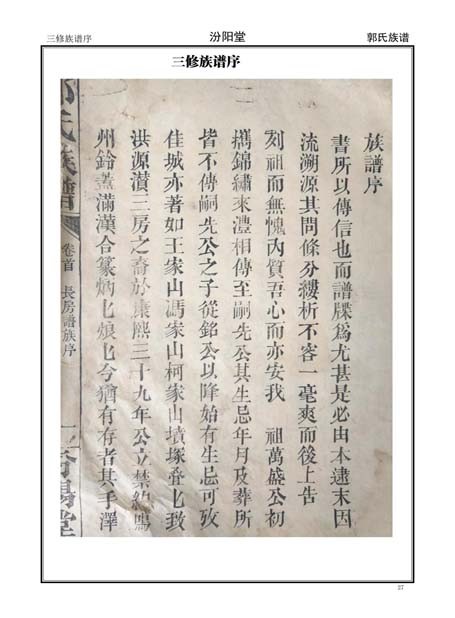 三修族谱序
汾阳堂
郭氏族谱
三修族谱序
族譜序
書所以傳信也而譜牒爲尤甚是必由本逮末因
流溯源其問條分縷析不容一毫爽而後上告
列祖而無愧內質吾心而亦安我 祖萬盛公初
攜錦繡來澧相傳至嗣先公其生忌年月及葬所
皆不傳嗣先公之子從銘公以降始有生忌可攷
佳城亦著如王家山馮家山柯家山墳塚疊乜致
洪源濽三房之裔於康熙三十九年公立禁約鳴
州鈐蓋滿漢合篆炳乜烺乜今猶有存者其手澤
氏族譜
卷首
長房譜族序
汾陽堂
27